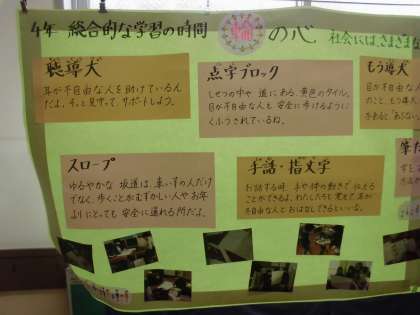 4年 総合的な学習の時間
の心
社会には、さまざまな
聴導犬
耳が不自由な人を助けているん
だよ。そっと見守って、サポートしよう。
点字ブロック
しせつの中や 道にある、黄色のタイル。
目が不自由な人も 安全に歩けるように
くふうされているね。
もう導犬
目が不自由な人
スロープ
ゆるやかな 坂道は、車いすの人だけ
でなく、歩くことがむずかしい人やお年
よりにとっても 安全に通れる所だよ。
手話・指文字
お話する時、手や体の動きで 伝える
ことができるよ。わたしたちも 覚えて、耳が
不自由な人と おはなしできるといいな。